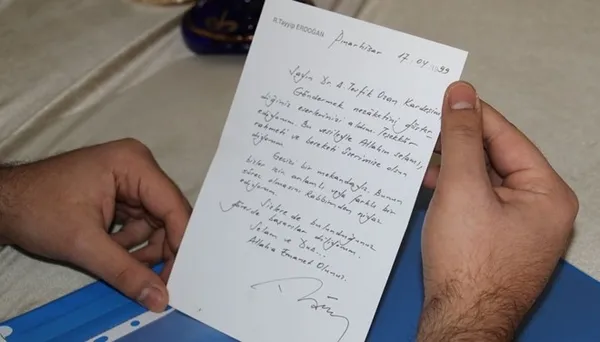 R. TAYYİP ERDOĞAN
Pınarhisar 17.04.1999
Sayın Dr. A. Tevfik Ozan Kardeşim
Göndermek nezaketini göster-
diğiniz eserlerinizi aldım. Teşekkür
ediyorum. Bu vesileyle Allahın selamı,
rahmeti ve bereketi üzerinize olsun
diyorum.
Geçici bir mekandayız. Bunun
bizler için anlamlı, ve farklı bir
süreç olmasını Rabbimden niyaz
ediyorum.
Sizlere de bulunduğunuz
görevde başarılar diliyorum.
Selam ve Dua...
Allaha Emanet Olunuz.